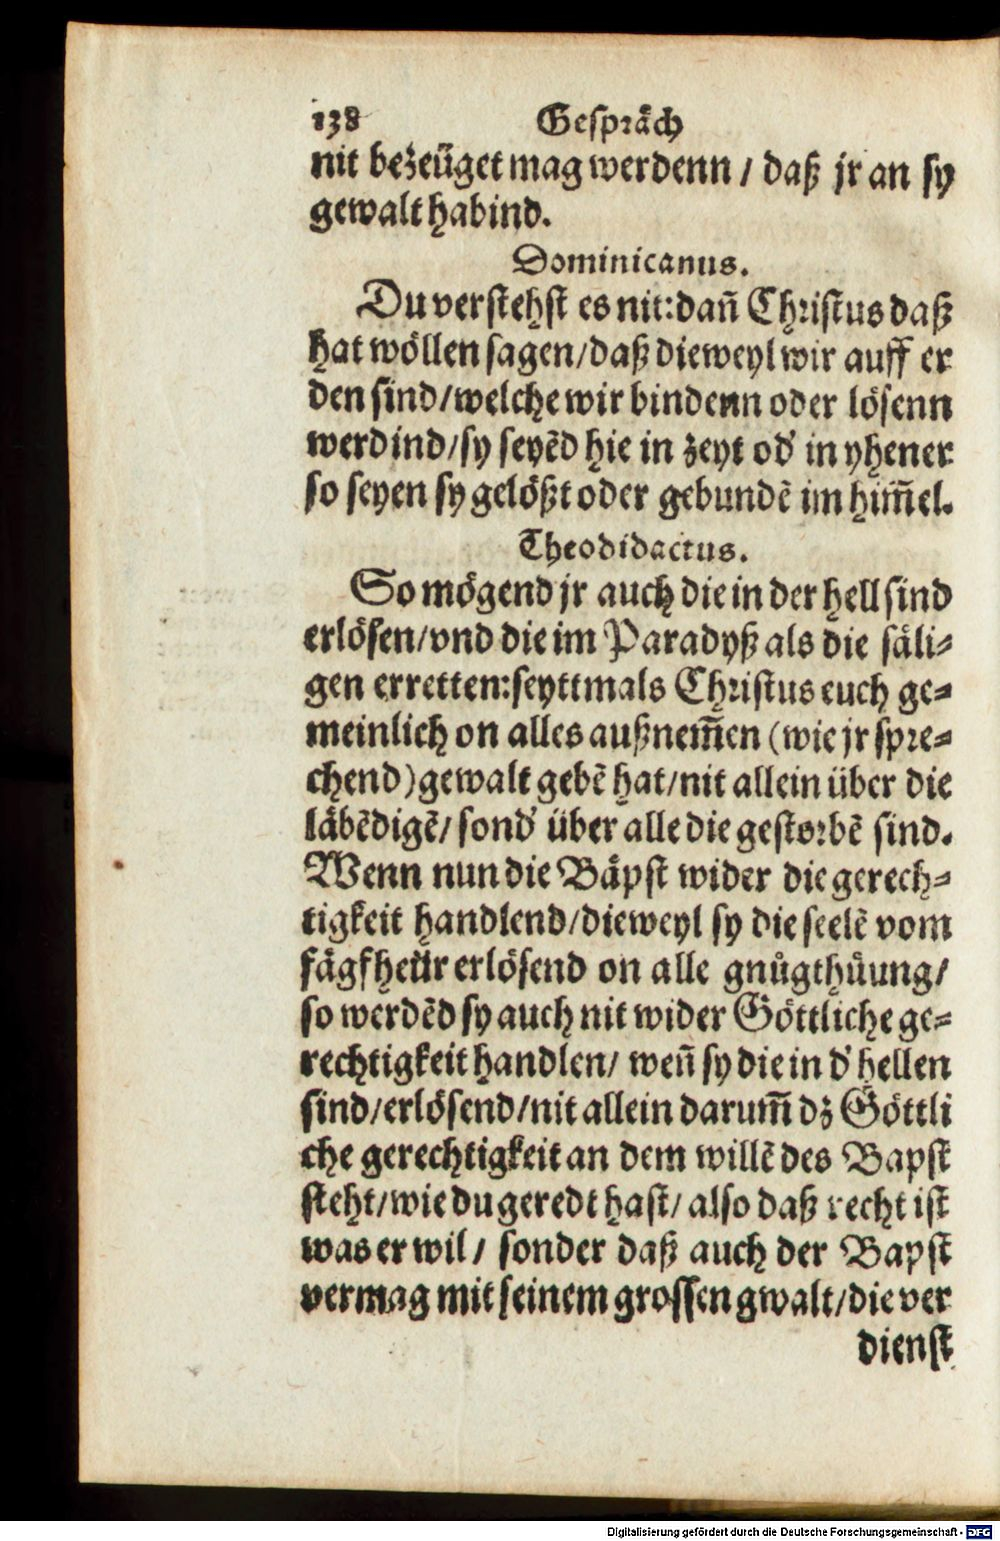 138 Gespräch
nit bezeüget mag werdenn / daß jr an sy
gewalt habind.
Dominicanus.
Du verstehst es nit: dañ Christus daß
hat wöllen sagen/daß dieweyl wir auff er
den sind/welche wir bindenn oder lösenn
werdind/sy seyēd hie in zeyt od' in yhener
so seyen sy gelößt oder gebundē im him̄el.
Theodidactus.
So mögend jr auch die in der hell sind
erlösen/vnd die im Paradyß als die säli⸗
gen erretten: seyttmals Christus euch ge⸗
meinlich on alles außnem̄en (wie jr spre⸗
chend) gewalt gebē hat/nit allein über die
läbēdigē/ sond' über alle die gestorbē sind.
Wenn nun die Bäpst wider die gerech⸗
tigkeit handlend/dieweyl sy die seelē vom
fägfheür erlösend on alle gnůgthůung/
so werdēd sy auch nit wider Göttliche ge⸗
rechtigkeit handlen/ weñ sy die in d' hellen
sind/erlösend/nit allein darum̄ dz Göttli
che gerechtigkeit an dem willē des Bapst
steht/wie du geredt hast/ also daß recht ist
was er wil / sonder daß auch der Bapst
vermag mit seinem grossen gwalt/die ver
dienst
Digitalisierung gefördert durch die Deutsche Forschungsgemeinschaft - DFG